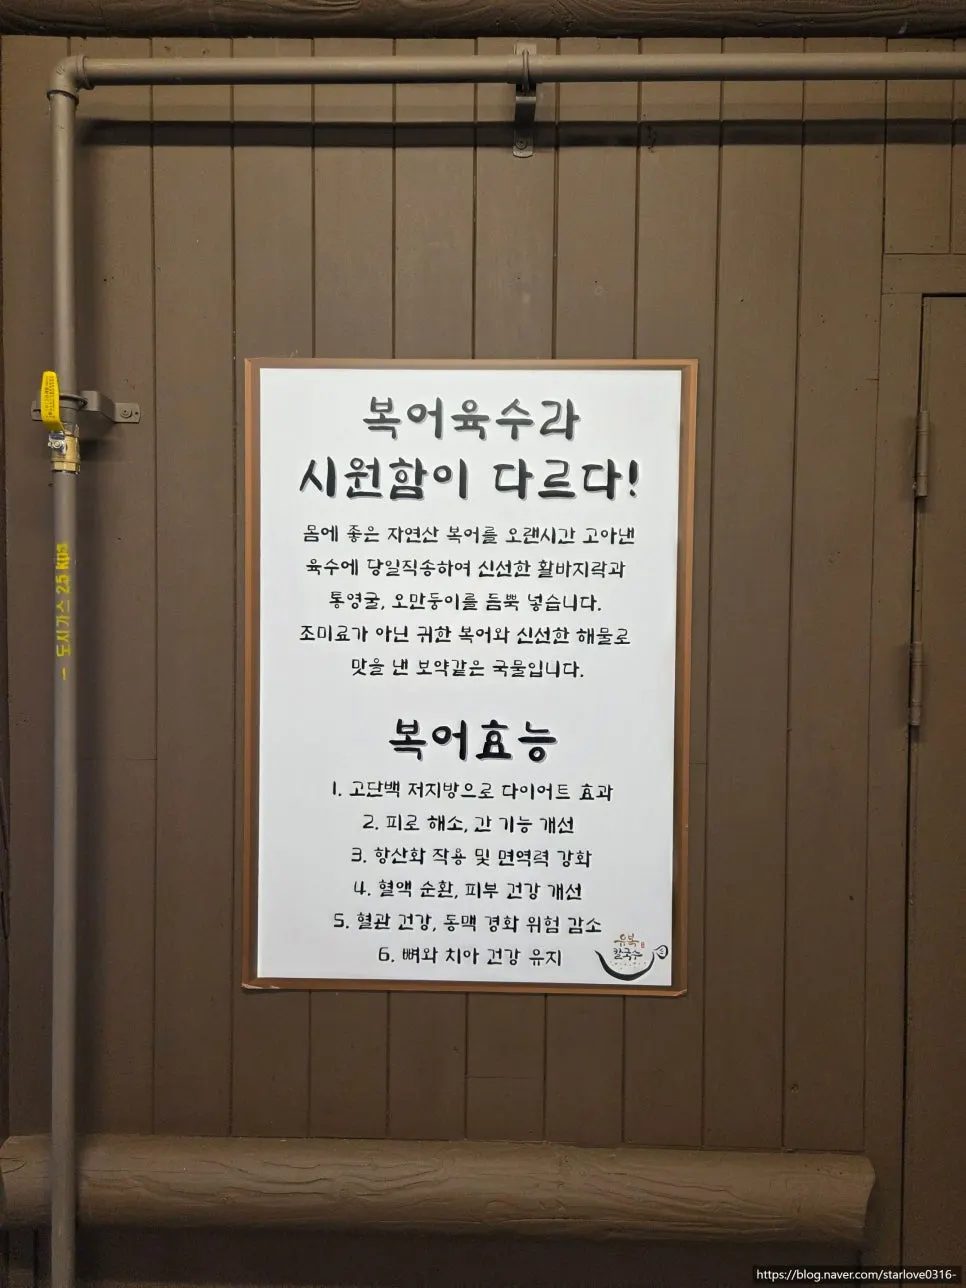 복어육수라
시원함이 다르다!
몸에 좋은 자연산 복어를 오랜시간 고아낸
육수에 당일직송하여 신선한 활바지락과
통영굴, 오만둥이를 듬뿍 넣습니다.
조미료가 아닌 귀한 복어와 신선한 해물로
맛을 낸 보약같은 국물입니다.
복어효능
1. 고단백 저지방으로 다이어트 효과
2. 피로 해소, 간 기능 개선
3. 항산화 작용 및 면역력 강화
4. 혈액 순환, 피부 건강 개선
5. 혈관 건강, 동맥 경화 위험 감소
6. 뼈와 치아 건강 유지
유복
칼국수
도시가스 2.5 kpa
https://blog.naver.com/starlove0316-